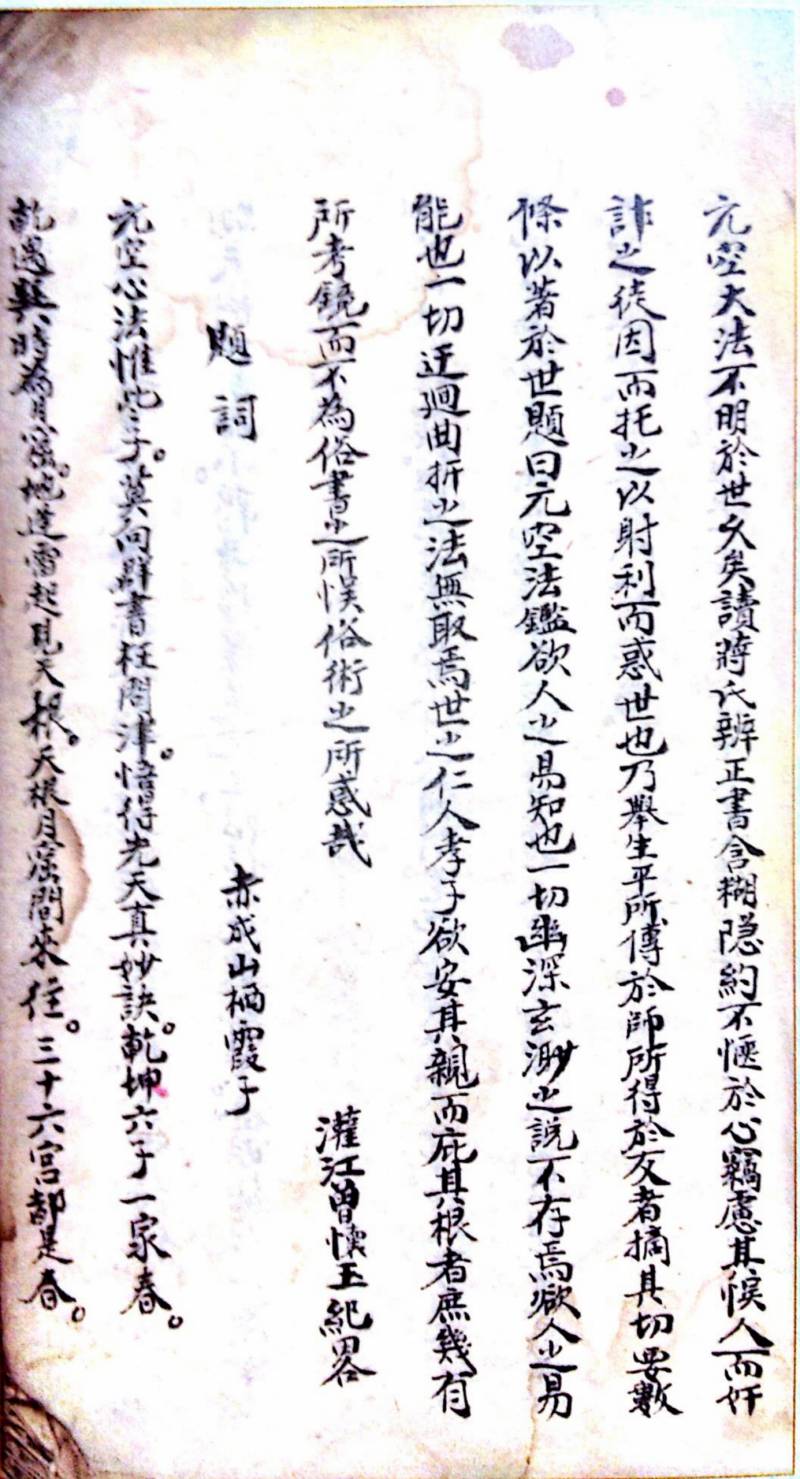 元空大法不明於世久矣讀蔣氏辨正書含糊隐約不愜於心竊慮其悮人而奸
詐之徒因而托之以射利而惑世也乃舉生平所傳於師所得於友者摘其切要數
條以著於世題曰元空法鑑欲人之易知也一切幽深玄渺之説不存焉欲人之易
能也一切迂廻曲折之法無取焉世之仁人孝子欲安其親而庇其根者庶幾有
所考鏡而不為俗書之所悮俗術之所惑哉
灌江曾懷玉紀畧
題詞
赤成山栖霞子
元空心法惟此子。莫向群書枉问津。悟得先天真妙訣。乾坤六子一家春。
乾遇巽時為月窟。地逢雷起見天根。天根月窟間來往。三十六宮都是春。